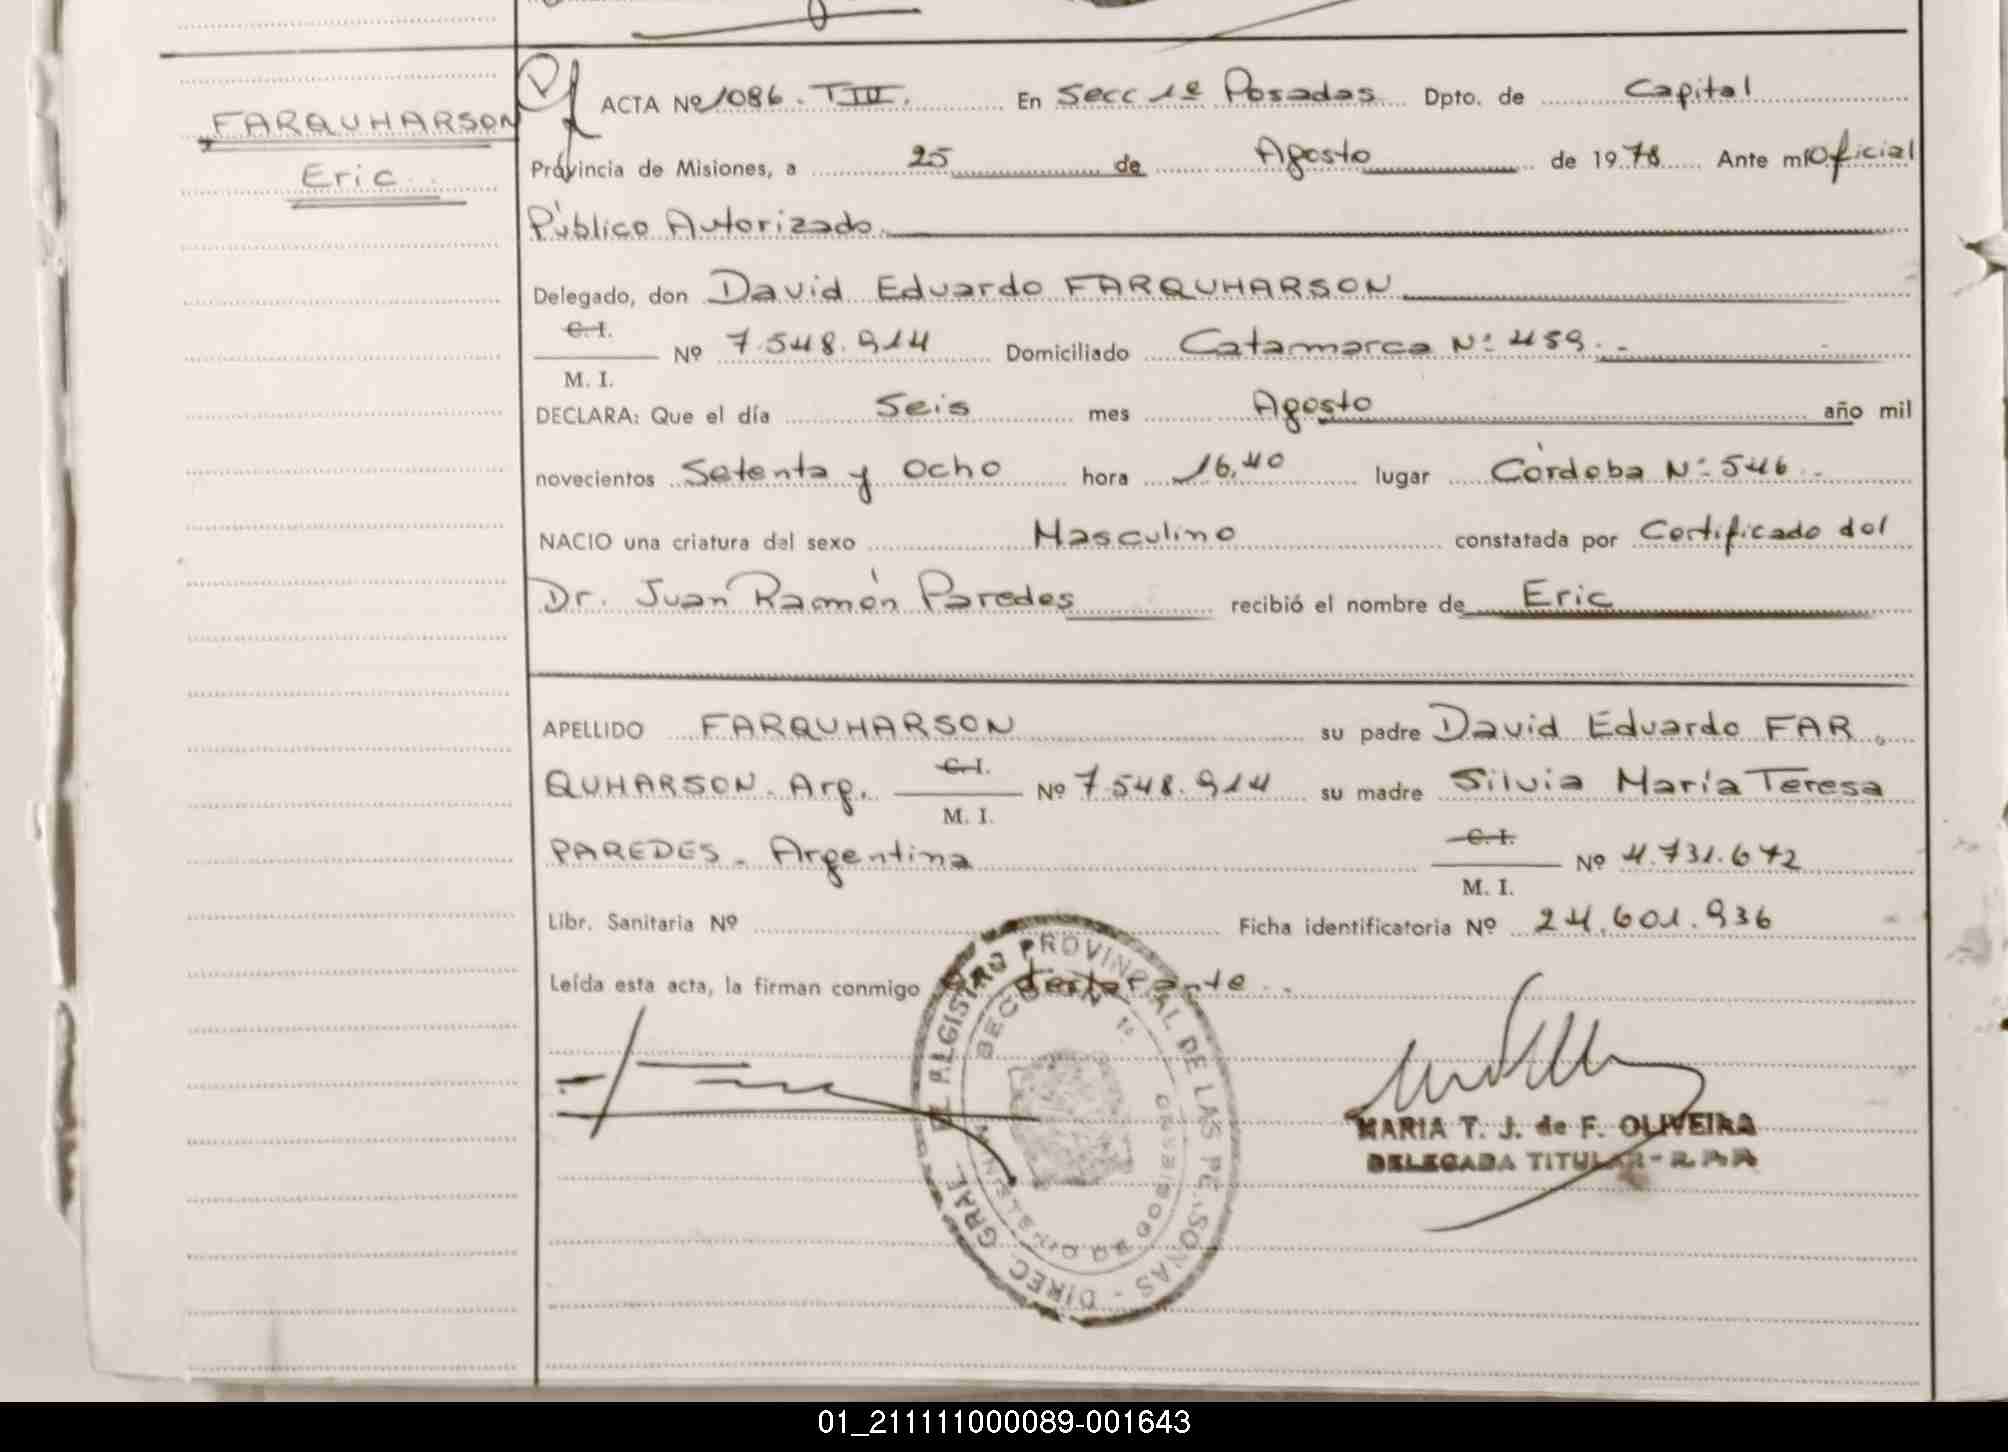 FARQUHARSON
Eric
ACTA Nº 1086. T III. En Secc 1º Posadas Dpto. de Capital
Provincia de Misiones, a 25 de Agosto de 1978 Ante mí Oficial
Público Autorizado.
Delegado, don David Eduardo FARQUHARSON
C.I.
M. I.
Nº 7.548.914 Domiciliado Catamarca Nº 459.-
DECLARA: Que el día Seis mes Agosto año mil
novecientos Setenta y Ocho hora 16,40 lugar Córdoba Nº 546.-
NACIO una criatura del sexo Masculino constatada por Certificado del
Dr. Juan Ramón Paredes recibió el nombre de Eric
APELLIDO FARQUHARSON su padre David Eduardo FAR
QUHARSON. Arg. C.I. M. I. Nº 7.548.914 su madre Silvia María Teresa
PAREDES. Argentina C.I. M. I. Nº 4.731.672
Libr. Sanitaria Nº Ficha identificatoria Nº 24.601.936
Leída esta acta, la firman conmigo declarante.-
DIREC. GRAL. DE REGISTRO PROVINCIAL DE LAS PERSONAS
SECCION 1º
MARIA T. J. de F. OLIVEIRA
DELEGADA TITULAR - R.P.P.
01_211111000089-001643